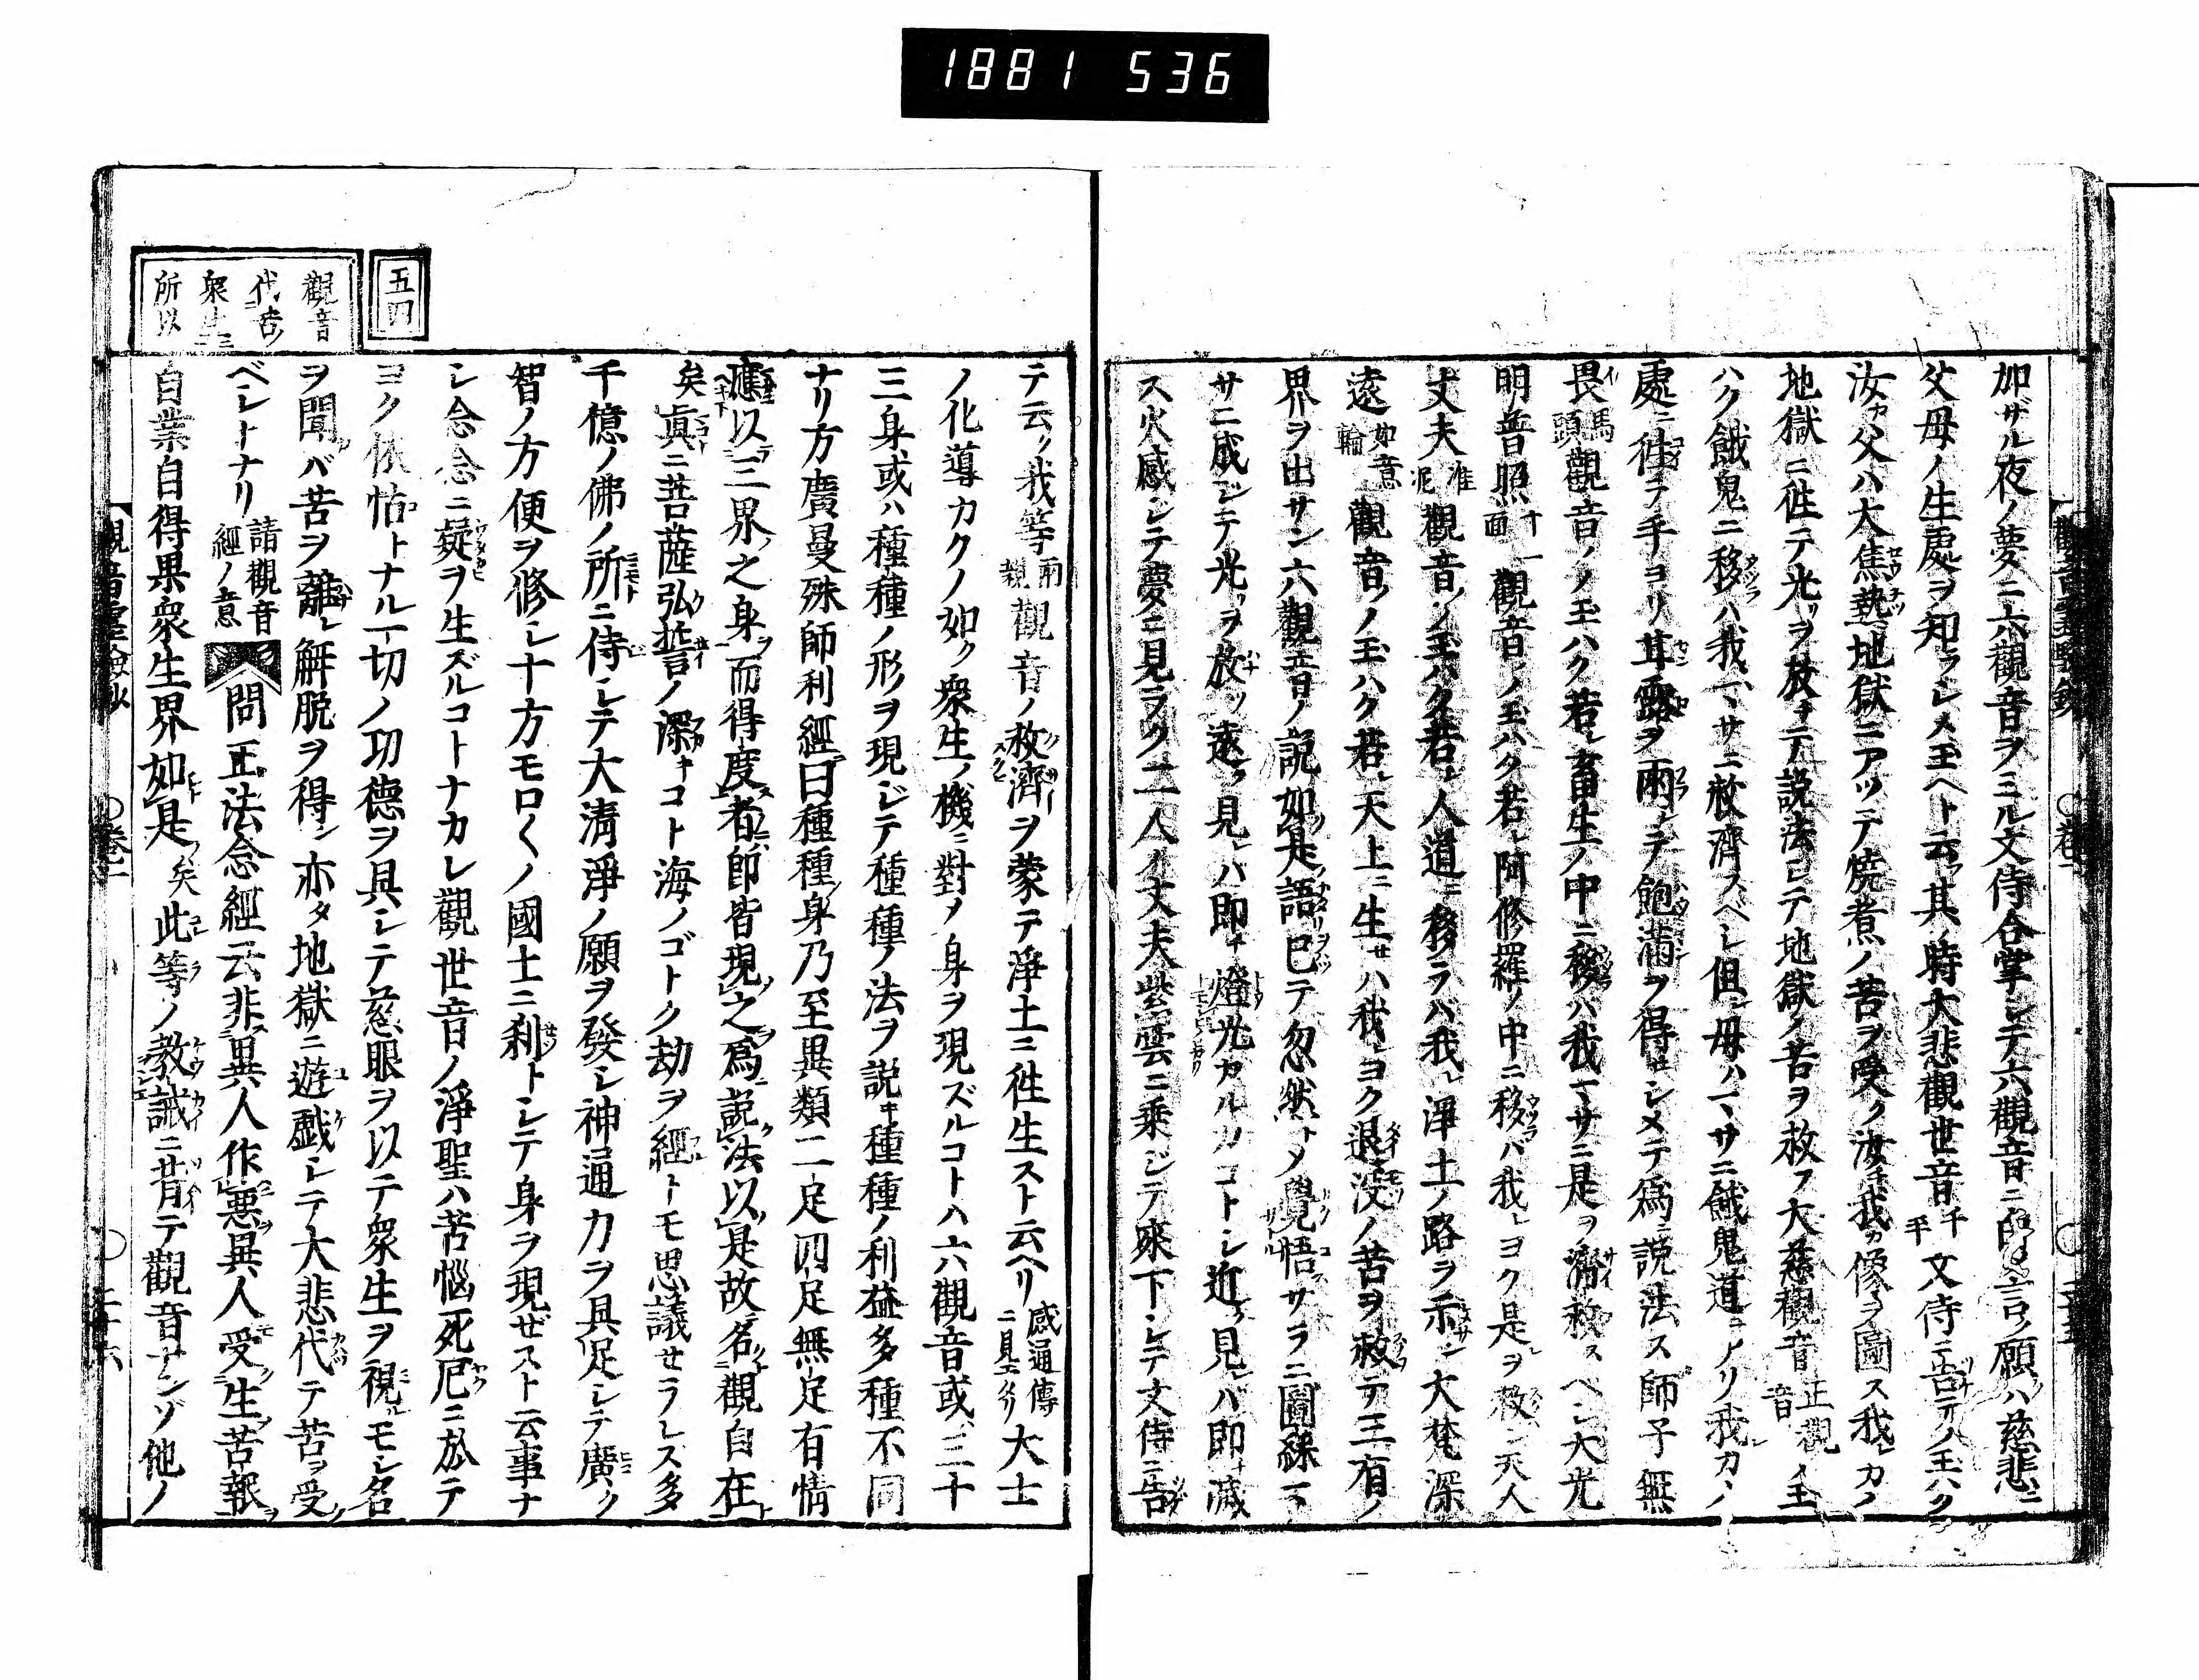 1881 536
加ザル夜ノ夢ニ六觀音ヲミル文侍合掌シテ六觀音ニ白シ言ク願ハ慈悲ニ
父母ノ生處ヲ知ラシメ玉ヘト云フ其ノ時大悲觀世音千手文侍ニ告テノ玉ハク
汝カ父ハ大焦熱地獄ニアツテ燒煮ノ苦ヲ受ク汝チ我カ像ヲ圖ス我レカノ
地獄ニ徃テ光ヲ放チテ説法シテ地獄ノ苦ヲ救フ大慈觀音正觀音ノ玉
ハク餓鬼ニ移ハ我マサニ救濟スベシ但シ母ハマサニ餓鬼道ニアリ我カノ
處ニ徃テ手ヨリ甘露ヲ雨テ飽滿ヲ得セシメテ爲ニ説法ス師子無
畏馬頭觀音ノノ玉ハク若シ畜生ノ中ニ移ハ我マサニ是ヲ濟救スベシ大光
明普照十一面觀音ノ玉ハク若シ阿修羅ノ中ニ移バ我レヨク是ヲ救ン天人
丈夫准泥觀音ノノ玉ハク若シ人道ニ移ラバ我レ淨土ノ路ヲ示サン大梵深
遠如意輪觀音ノノ玉ハク若シ天上ニ生セハ我レヨク退沒ノ苦ヲ救テ三有ノ
界ヲ出サン六觀音ノ説如是ノ語リ已テ忽然トメ覺悟サラニ圖繪マ
サニ成ジテ光ヲ放ツ遠ク見レハ即チ燈光カルカコトシ近ク見レバ即チ減
ス火感シテ夢ニ見ラク二人ノ丈夫紫雲ニ乘ジテ來下シテ文侍ニ告
テ云ク我等兩親觀音ノ救濟ヲ蒙テ淨土ニ徃生スト云ヘリ感通傳ニ見エタリ大士
ノ化導カクノ如ク衆生ノ機ニ對メ身ヲ現ズルコトハ六觀音或ハ三十
三身或ハ種種ノ形ヲ現ジテ種種ノ法ヲ説キ種種ノ利益多種不同
ナリ方廣曼殊師利經曰種種ノ身乃至異類二足四足無足有情
應以三界之身ヲ而得度者ニハ即皆現之爲説法以是故名觀自在ト
矣眞ニ菩薩弘誓ノ深キコト海ノゴトク劫ヲ經トモ思議セラレス多
千億ノ佛ノ所ニ侍シテ大清淨ノ願ヲ發シ神通力ヲ具足シテ廣ク
智ノ方便ヲ修シ十方モロ〱ノ國土ニ刹トシテ身ヲ現ゼスト云事ナ
シ念念ニ疑ヲ生ズルコトナカレ觀世音ノ淨聖ハ苦惱死厄ニ於テ
ヨク依怙トナル一切ノ功德ヲ具シテ慈眼ヲ以テ衆生ヲ視ルモシ名
ヲ聞バ苦ヲ離レ解脱ヲ得ン亦タ地獄ニ遊戲シテ大悲代テ苦ヲ受ク
ベシトナリ請觀音經ノ意問正法念經云非異人作惡異人受生苦報ヲ
自業自得果衆生界如是矣此等ノ教誡ニ背テ觀音ナンゾ他ノ
五四
觀音
代苦ノ
衆生ニ
所以
觀音靈驗鈔 〇卷一 〇二十六